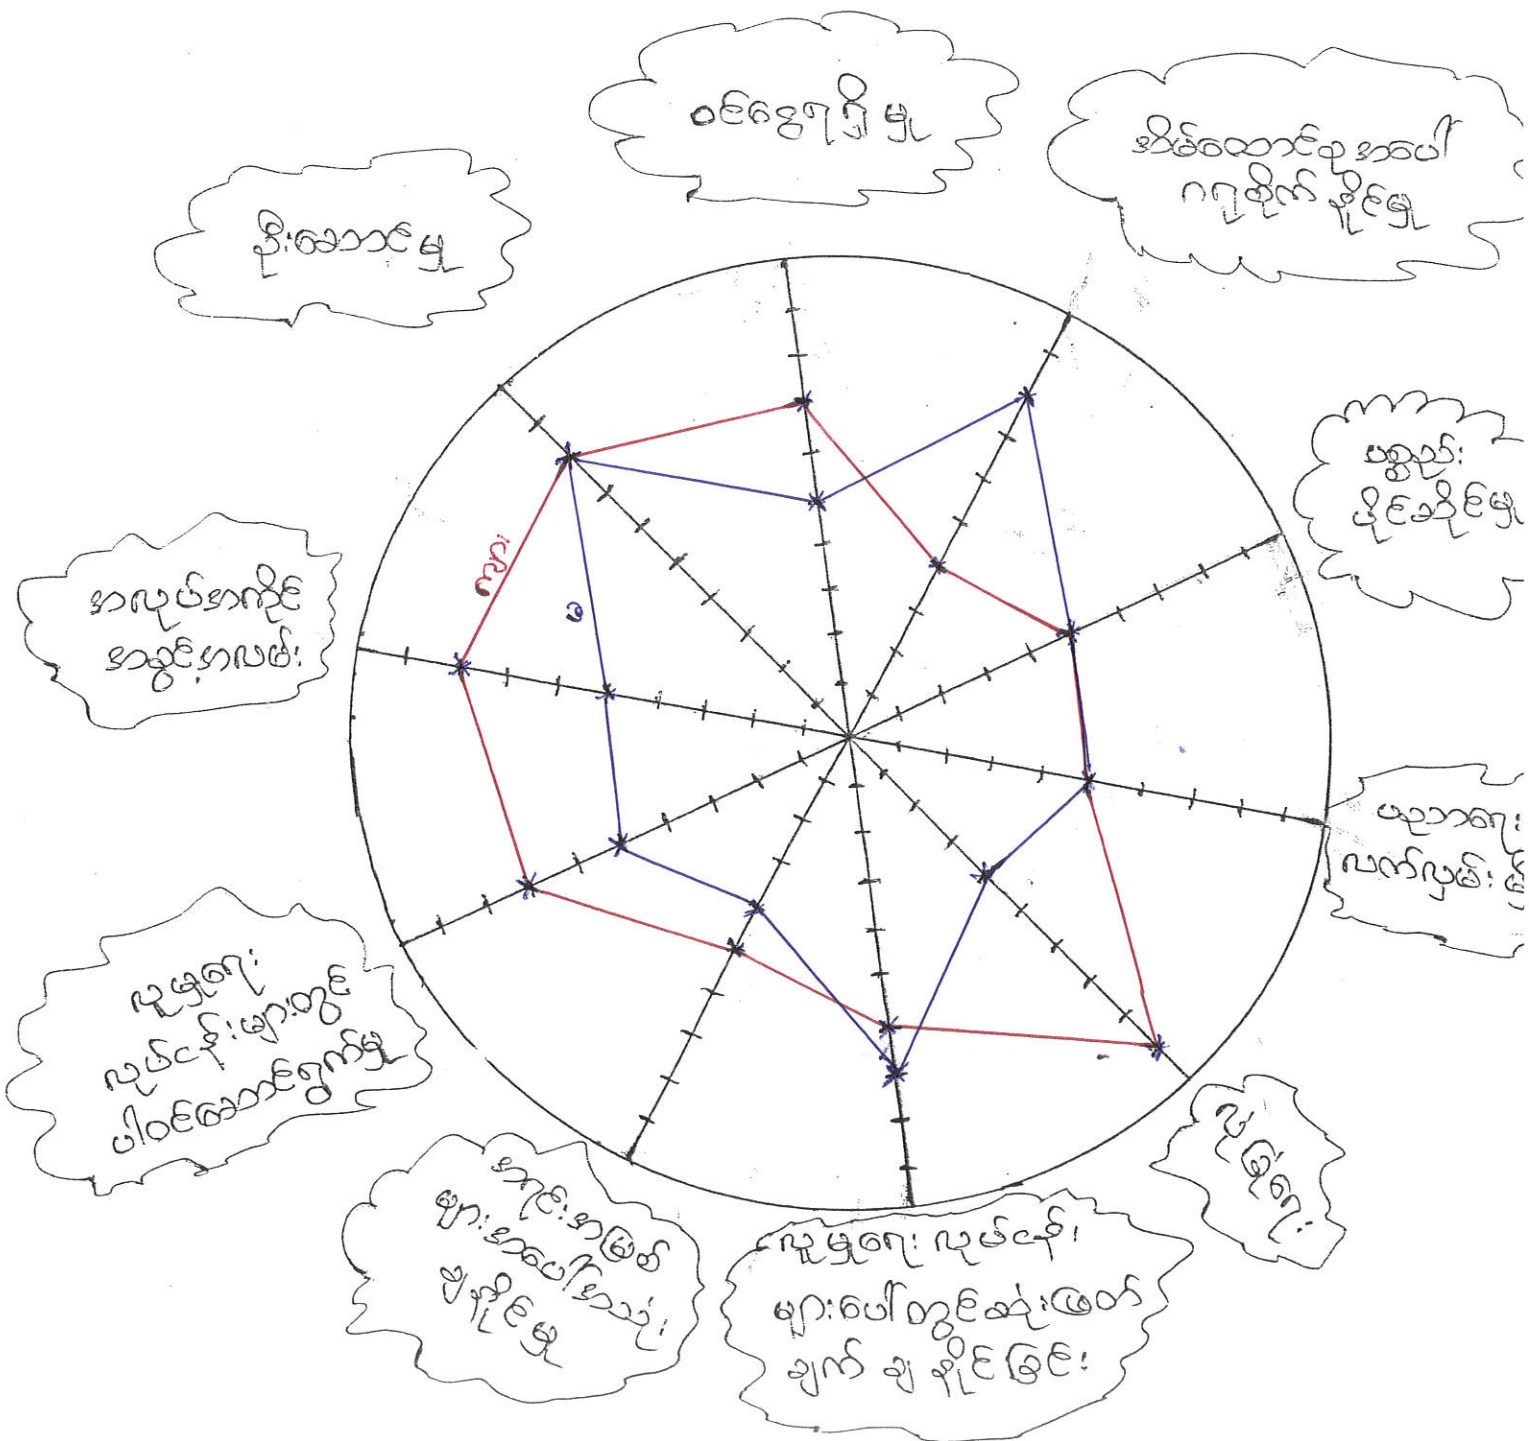 ဝင်ငွေရရှိမှု
အိမ်ထောင်စုအပေါ်
ဂရုစိုက်နိုင်မှု
ဦးဆောင်မှု
ပစ္စည်း
ပိုင်ဆိုင်မှု
ကျား
မ
အလုပ်အကိုင်
အခွင့်အလမ်း
ပညာရေး
လက်လှမ်းမှီ
လူမှုရေး
လုပ်ငန်းများတွင်
ပါဝင်ဆောင်ရွက်မှု
လုံခြုံရေး
အရင်းအမြစ်
များအပေါ်အသုံး
ချနိုင်မှု
လူမှုရေးလုပ်ငန်း
များပေါ်တွင်ဆုံးဖြတ်
ချက်ချနိုင်ခြင်း